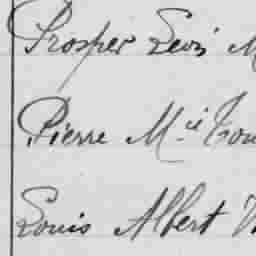 Prosper Levi M
Pierre M.ie Tou
Louis Albert